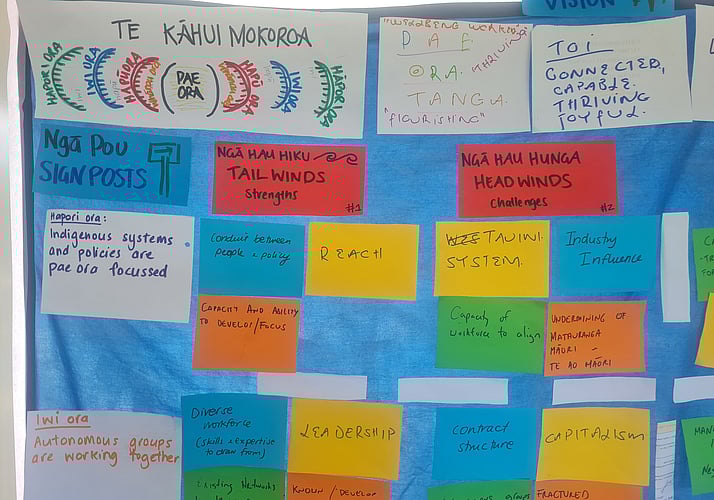 VISION
TE KĀHUI MOKOROA
HAPORI ORA
IWI ORA
HAPU ORA
PAE
ORA
HAPŪ ORA
IWI ORA
HAPORI ORA
PAE
ORA.
THRIVING
TANGA.
"FLOURISHING"
TOI
CONNECTED,
CAPABLE.
THRIVING
JOYFUL.
Ngā Pou
SIGNPOSTS
NGĀ HAU HIKU
TAILWINDS
Strengths
#1
NGĀ HAU HUNGA
HEADWINDS
Challenges
#2
Hapori ora:
Indigenous systems
and policies are
pae ora focussed
Conduit between
people & policy
REACH
CAPACITY AND ABILITY
TO DEVELOP/FOCUS
TAUIWI
SYSTEM.
Industry
Influence
Capacity of
workforce to align
UNDERMINING OF
MATAURANGA
MĀORI -
TE AO MĀORI
Iwi ora
Autonomous groups
are working together
Diverse
workforce
(skills & expertise
to draw from)
LEADERSHIP
Contract
structure
CAPITALISM
Existing Networks
KNOWN / DEVELOP
groups
FRACTURED